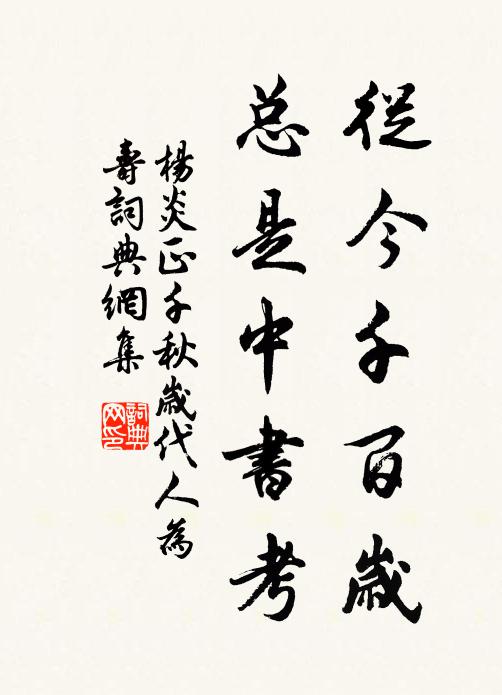 從今千百歲
总是中書考
楊炎正千秋歲代人為
壽詞典網集
詞典
网印